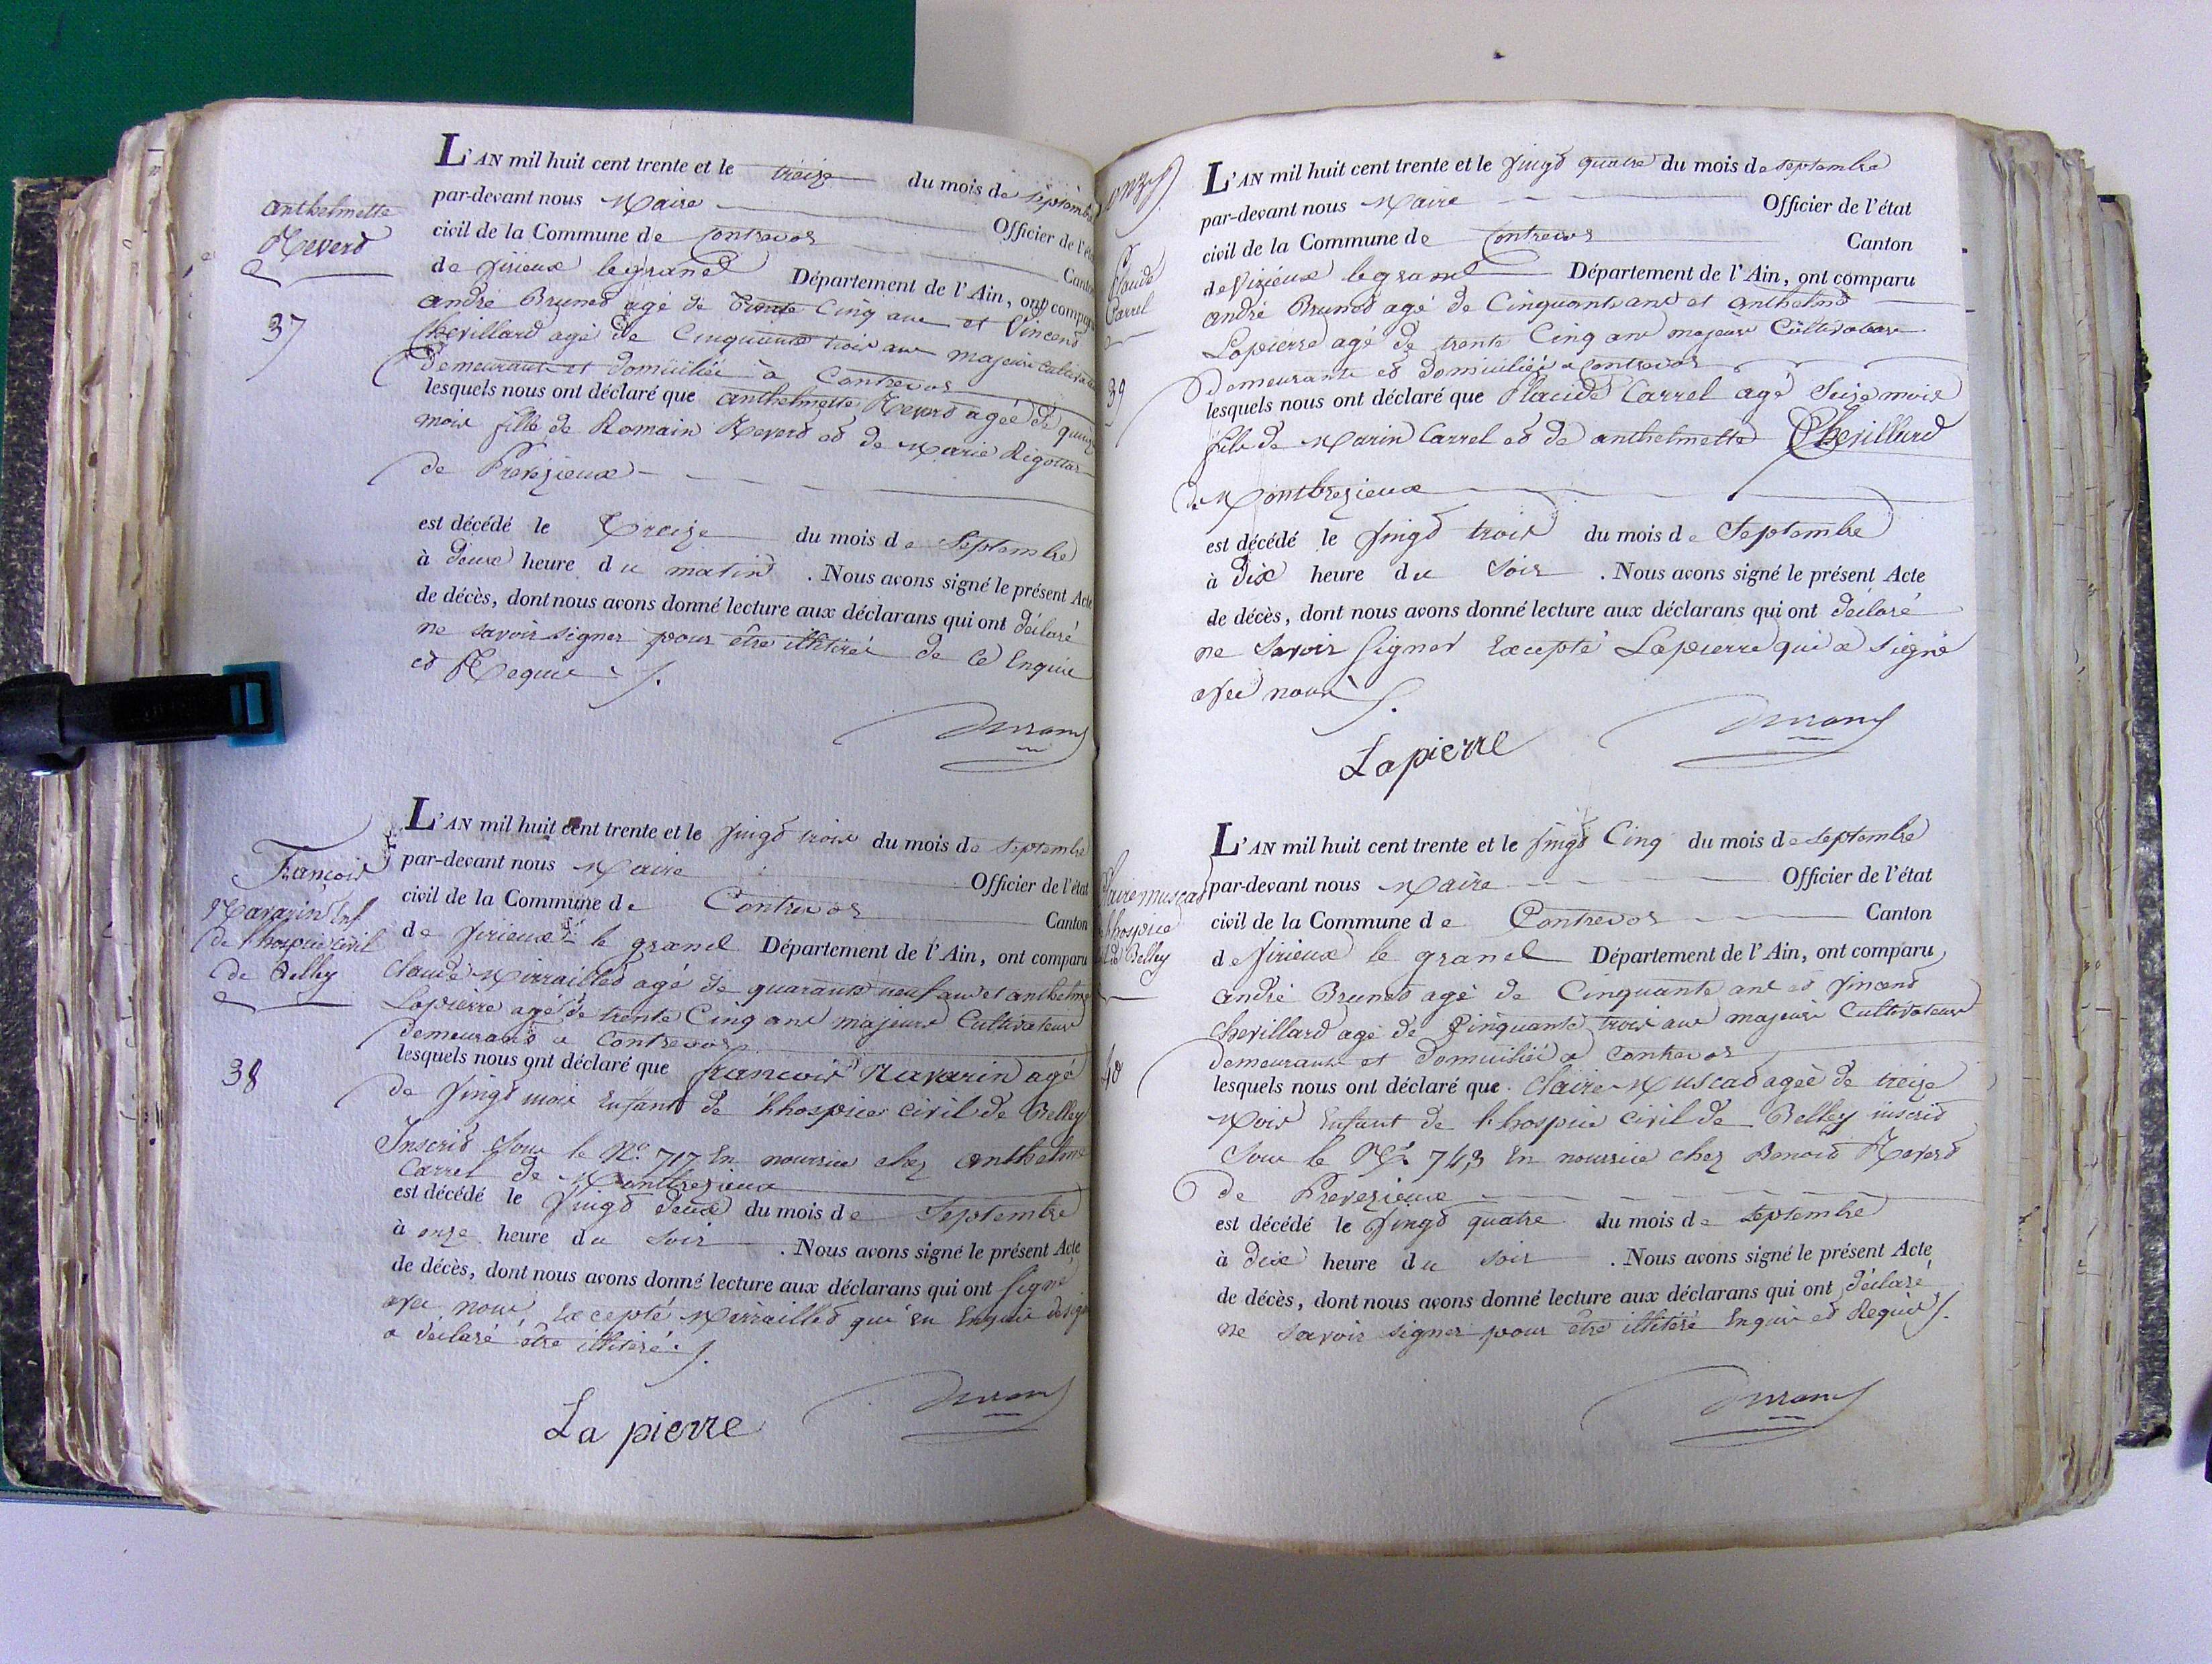 anthelmette
Reverd
37
L'AN mil huit cent trente et le treize du mois de septembre
par-devant nous Maire Officier de l'état
civil de la Commune de Contrevos Canton
de Virieux legrand Département de l'Ain, ont comparu
andré Brunet agé de Trente Cinq ans et Vincend
Chevillard agé de Cinquante trois ans majeurs Cultivateurs
Demeurants et Domiciliés à Contrevos
lesquels nous ont déclaré que anthelmette Reverd agée de quinze
mois fille de Romain Reverd et de Marie Rigottas
de Preveyieux
est décédé le Treize du mois de Septembre
à Deux heure du matin . Nous avons signé le présent Acte
de décès, dont nous avons donné lecture aux déclarans qui ont Déclaré
ne savoir signer pour être illitérés de ce Enquis
et Requis
Durand
François
Navarin Enf.
de l'hospice civil
de Belley
38
L'AN mil huit cent trente et le Vingt trois du mois de Septembre
par-devant nous Maire Officier de l'état
civil de la Commune de Contrevos Canton
de Virieux le grand Département de l'Ain, ont comparu
Claude Mirailled agé de quarante neuf ans et anthelme
Lapierre agé de trente Cinq ans majeurs Cultivateurs
Demeurants a Contrevos
lesquels nous ont déclaré que francois Navarin agé
de Vingt mois Enfant de l'hospice civil de Belley
Inscrit Sous le No. 717 En nourrice chez anthelme
Carrel de Montbreyieux
est décédé le Vingt Deux du mois de Septembre
à onze heure du Soir . Nous avons signé le présent Acte
de décès, dont nous avons donné lecture aux déclarans qui ont Signé
avec nous Excepté Mirailled qui en Enquis
a Déclaré être illitéré.
La pierre
Durand
onze
Placide
Carrel
39
L'AN mil huit cent trente et le Vingt quatre du mois de septembre
par-devant nous Maire Officier de l'état
civil de la Commune de Contrevos Canton
de Virieux legrand Département de l'Ain, ont comparu
andré Brunet agé de Cinquante ans et Anthelme
Lapierre agé de trente Cinq ans majeurs Cultivateurs
Demeurants et Domiciliés a Contrevos
lesquels nous ont déclaré que Placide Carrel agé Seize mois
fils de Marin Carrel et de anthelmette Chevillard
de Montbreyieux
est décédé le Vingt trois du mois de Septembre
à Dix heure du Soir . Nous avons signé le présent Acte
de décès, dont nous avons donné lecture aux déclarans qui ont Déclaré
ne Savoir Signer Excepté Lapierre qui a Signé
avec nous
Lapierre
Durand
Claire muscad
l'hospice
Belley
40
L'AN mil huit cent trente et le Vingt Cinq du mois de septembre
par-devant nous Maire Officier de l'état
civil de la Commune de Contrevos Canton
de Virieux le grand Département de l'Ain, ont comparu
andré Brunet agé de Cinquante ans et Vincend
Chevillard agé de Cinquante trois ans majeurs Cultivateurs
demeurants et Domiciliés a Contrevos
lesquels nous ont déclaré que Claire Muscad agée de treize
Mois Enfant de l'hospice civil de Belley inscrit
Sous le No. 743 En nourrice chez Benoit Reverd
de Preveyieux
est décédé le Vingt quatre du mois de Septembre
à Dix heure du Soir . Nous avons signé le présent Acte
de décès, dont nous avons donné lecture aux déclarans qui ont Déclaré
ne Savoir signer pour être illitéré Enquis et Requis
Durand